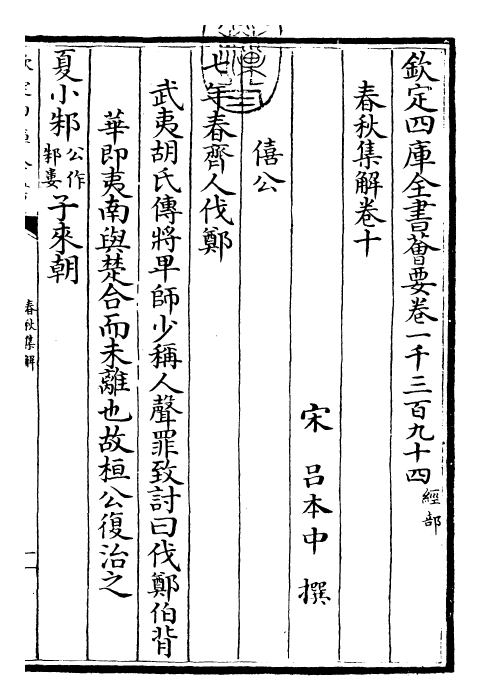 欽定四庫全書薈要卷一千三百九十四經部
春秋集解卷十
宋 呂本中 撰
僖公
七年春齊人伐鄭
武夷胡氏傳將卑師少稱人聲罪致討曰伐鄭伯背
華即夷南與楚合而未離也故桓公復治之
夏小邾公作邾婁子來朝
春秋集解